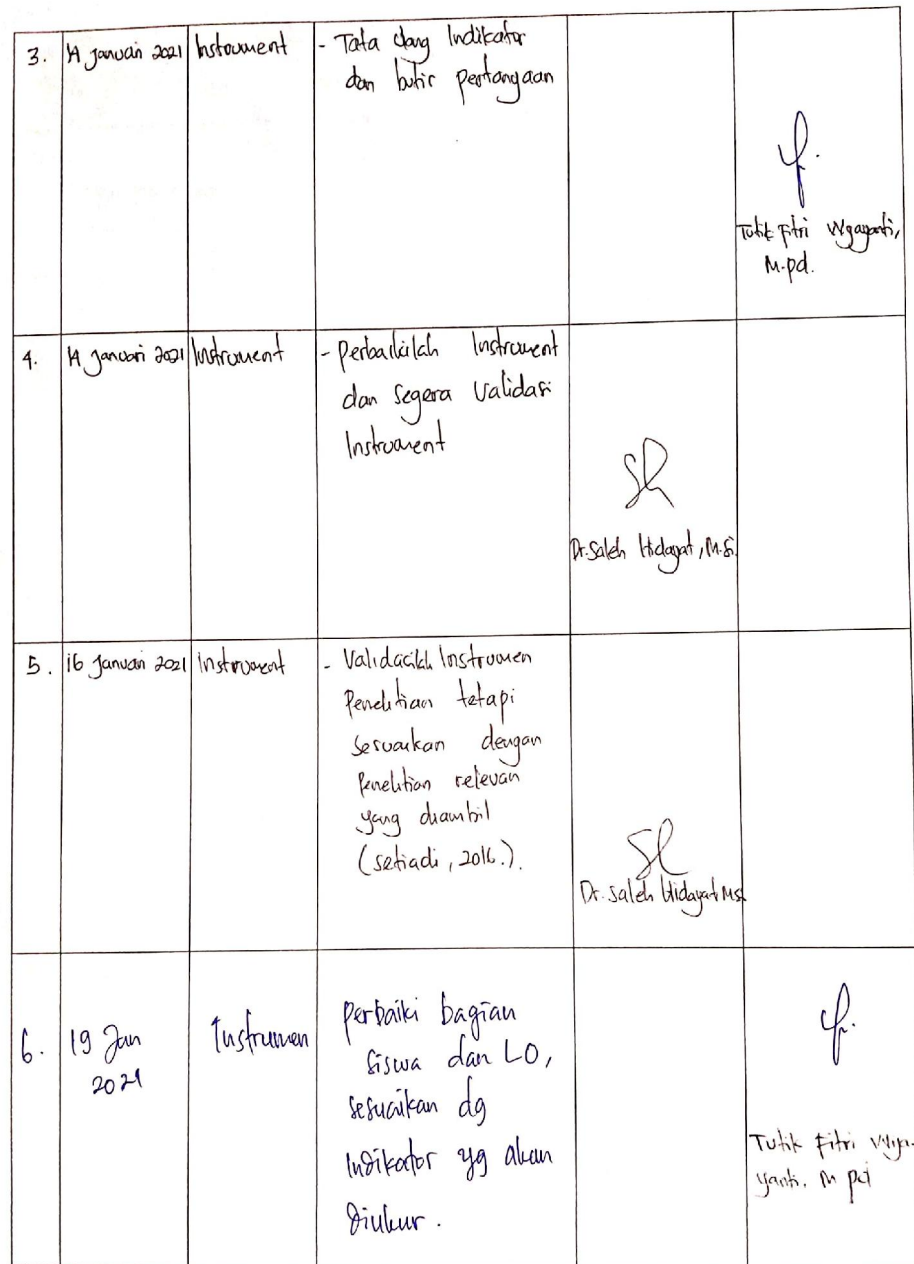 3. 14 Januari 2021 Instrument - Tata ulang Indikator
dan butir pertanyaan
Tutik Fitri Wijayanti,
M.pd.
4. 14 Januari 2021 Instrument - Perbaikilah Instrument
dan segera Validasi
Instrument
Dr. Saleh Hidayat, M.Si.
5. 16 Januari 2021 Instrument - Validasilah Instrumen
Penelitian tetapi
sesuaikan dengan
Penelitian relevan
yang diambil
(setiadi, 2016.).
Dr. Saleh Hidayat, MSi
6. 19 Jan
2021
Instrumen
perbaiki bagian
siswa dan LO,
sesuaikan dg
Indikator yg akan
diukur.
Tutik Fitri Wija-
yanti. M pd